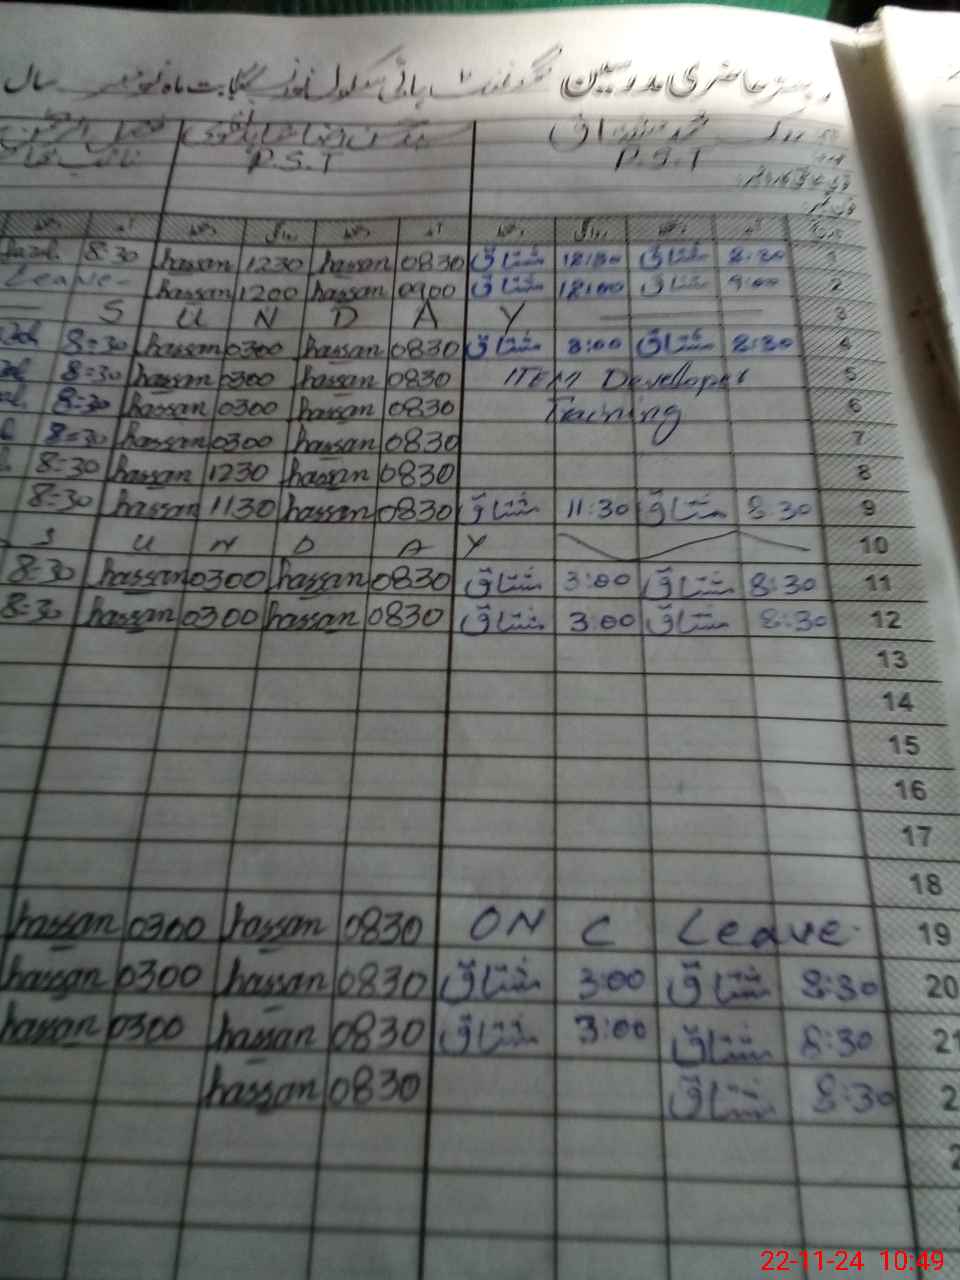 رجسٹر حاضری مدرسین گورنمنٹ ہائی سکول بابت ماہ نومبر سال
محمد مشتاق
P.S.T P.S.T
1 8:30 مشتاق 12:30 مشتاق 0830 hassan 1230 hassan 8:30
2 9:00 مشتاق 12:00 مشتاق 0900 hassan 1200 hassan Leave
3 S U N D A Y
4 8:30 مشتاق 3:00 مشتاق 0830 hassan 0300 hassan 8=30
5 ITEM Developer 0830 hassan 0300 hassan 8=30
6 Training 0830 hassan 0300 hassan 8=30
7 0830 hassan 0300 hassan 8=30
8 0830 hassan 1230 hassan 8=30
9 8:30 مشتاق 11:30 مشتاق 0830 hassan 1130 hassan 8-30
10 S U N D A Y
11 8:30 مشتاق 3:00 مشتاق 0830 hassan 0300 hassan 8-30
12 8:30 مشتاق 3:00 مشتاق 0830 hassan 0300 hassan 8-30
13
14
15
16
17
18
19 ON C Leave 0830 hassan 0300 hassan
20 8:30 مشتاق 3:00 مشتاق 0830 hassan 0300 hassan
21 8:30 مشتاق 3:00 مشتاق 0830 hassan 0300 hassan
2 8:30 مشتاق 0830 hassan
22-11-24 10:49